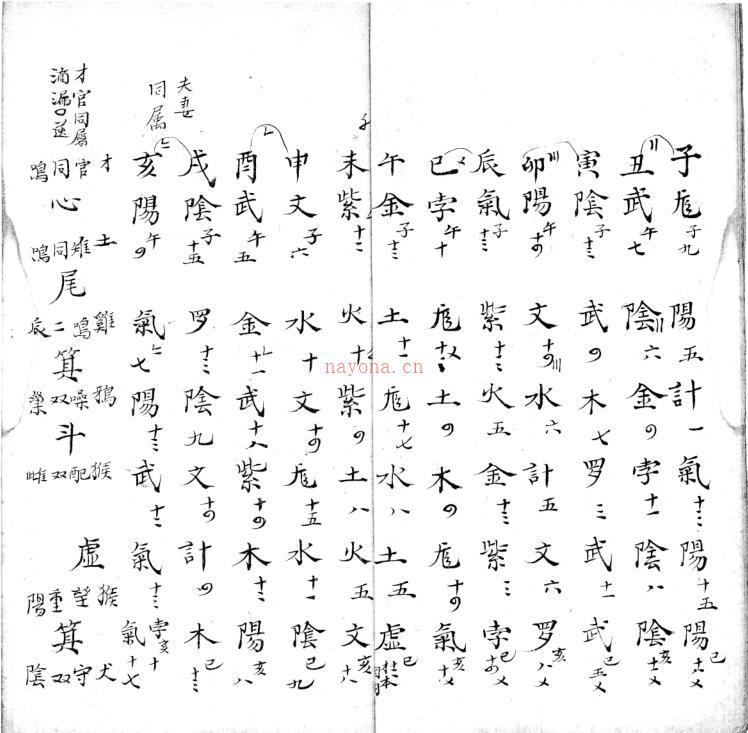 子㡳子九 陽五 計一 氣十三 陽十五 陽巳十六乂
丑武午七 陰六 金の 孛十一 陰八 陰亥十六乂
寅陰子十三 武の 木七 罗三 武十一 武巳五乂
卯陽午十の 文十の 水六 計五 文六 罗亥八乂
辰氣子十三 紫十三 火五 金十三 紫三 孛巳十の乂
巳孛午十 土の 木の 十の 氣亥十乂
午金子十三 土十一 十七 水八 土五 虛巳
未紫十二 火十 紫の 土八 火五 文亥十八
申文子六 水十 文十の 十五 水十一 陰巳九
酉武午五 金廿一 武十八 紫十の 木十三 陽亥八
戌陰子十五 罗十三 陰九 文十の 計の 木巳十三
亥陽午の 氣七 陽十三 武十三 氣十三 孛亥十 氣十七
夫妻同属
才官同属
滴漏
才官同鳴
心
土雉同鳴
尾
雞鳴二辰
箕
鴉噪双巢
斗
猴配双雌
虛
猴望重陽
箕
犬守双陰
nayona.cn